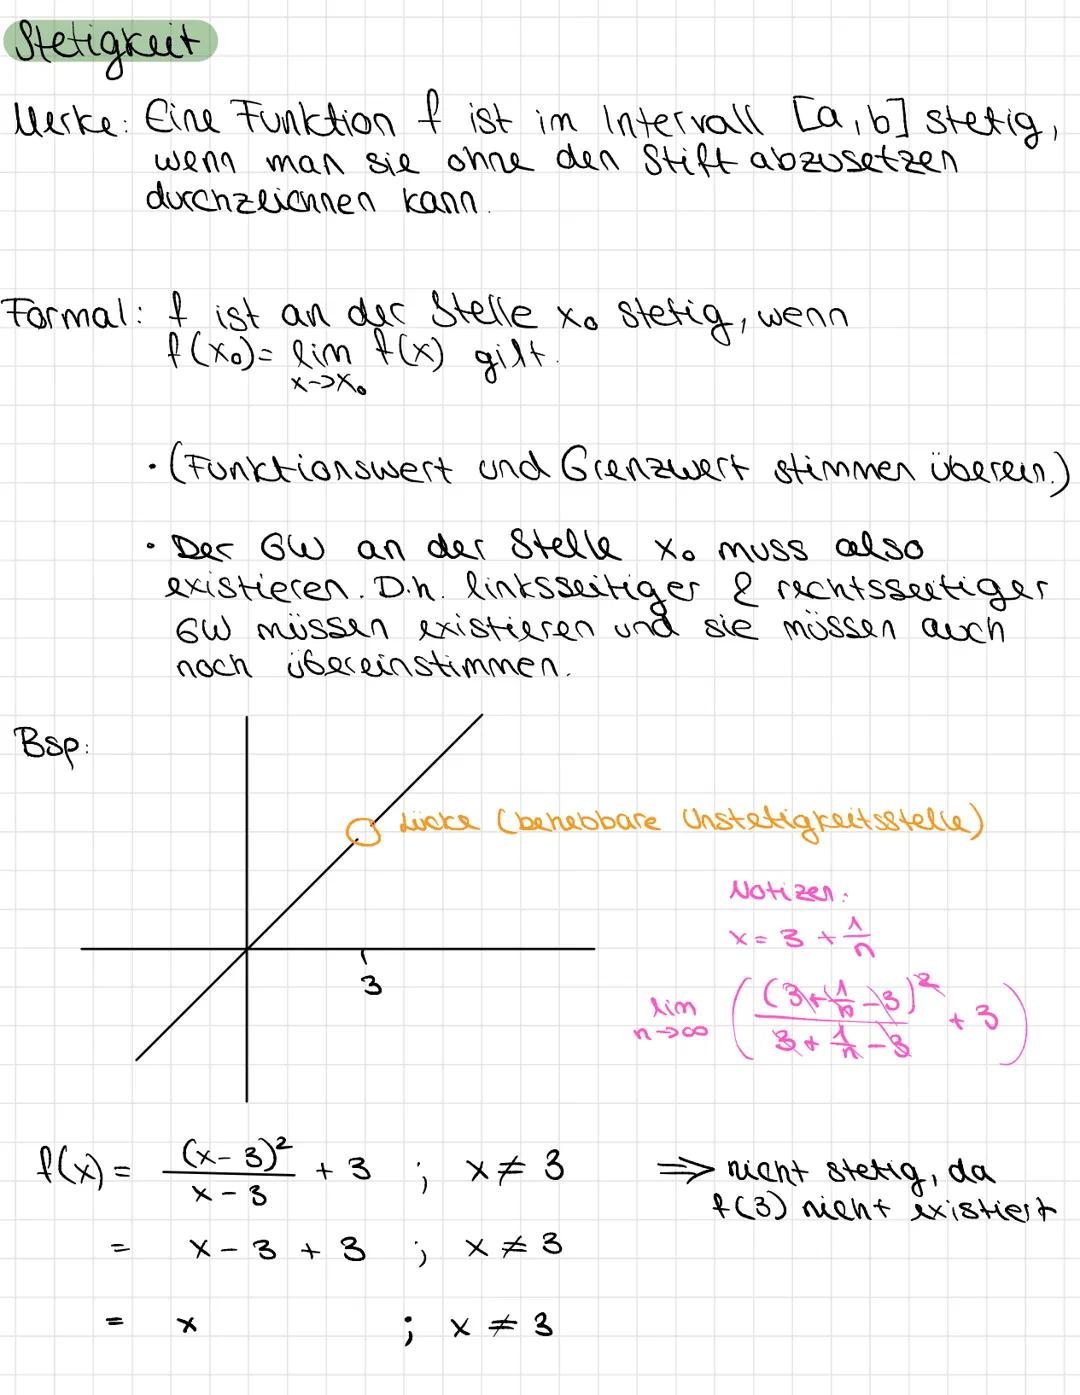 Stetigkeit
Merke: Eine Funktion f ist im Intervall [a,b] stetig,
wenn man sie ohne den Stift abzusetzen
durchzeichnen kann.
Formal: f ist an der Stelle x₀ stetig, wenn
f(x₀) = lim f(x) gilt.
x->x₀
• (Funktionswert und Grenzwert stimmen überein.)
• Der GW an der Stelle x₀ muss also
existieren. D.h. linksseitiger & rechtsseitiger
GW müssen existieren und sie müssen auch
noch übereinstimmen.
Bsp:
Lücke (behebbare Unstetigkeitsstelle)
Notizen:
x = 3 + 1/n
3
lim n->∞ ( (3+1/n-3)²/(3+1/n-3) + 3 )
f(x) = (x-3)²/(x-3) + 3 ; x ≠ 3
=> nicht stetig, da
f(3) nicht existiert
= x - 3 + 3 ; x ≠ 3
= x ; x ≠ 3